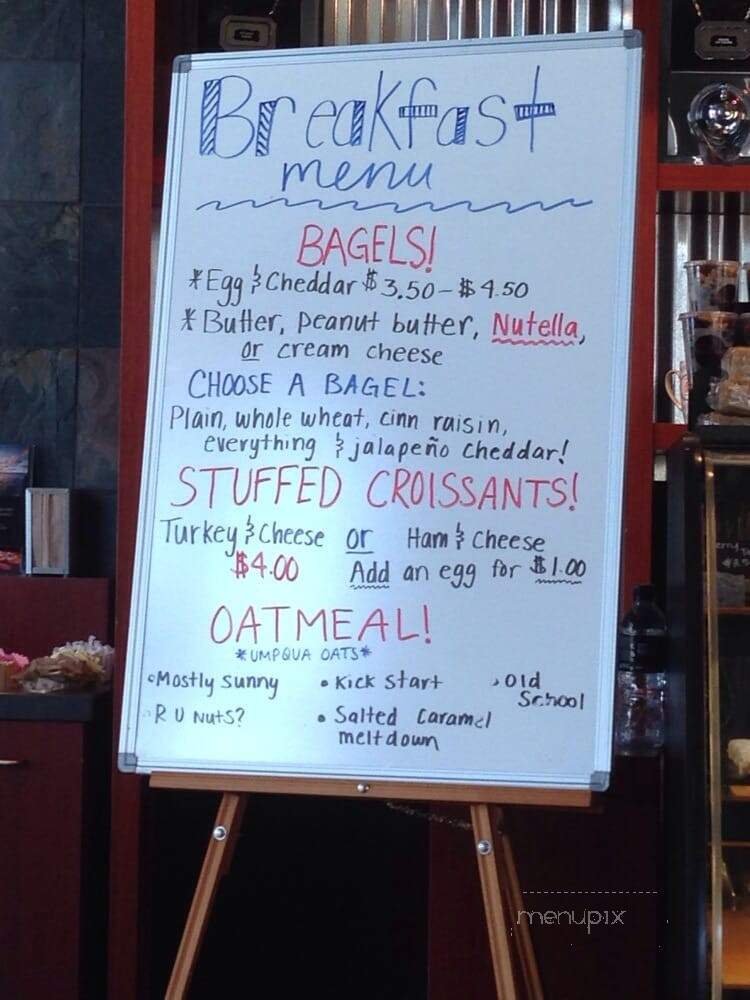 Breakfast
menu
BAGELS!
*Egg & Cheddar $3.50-$4.50
*Butter, peanut butter, Nutella,
or cream cheese
CHOOSE A BAGEL:
Plain, whole wheat, cinn raisin,
everything & jalapeño cheddar!
STUFFED CROISSANTS!
Turkey & Cheese or Ham & Cheese
$4.00 Add an egg for $1.00
OATMEAL!
*UMPQUA OATS*
•Mostly sunny • Kick Start • Old
School
• R U Nuts? • Salted Caramel
meltdown
menupix